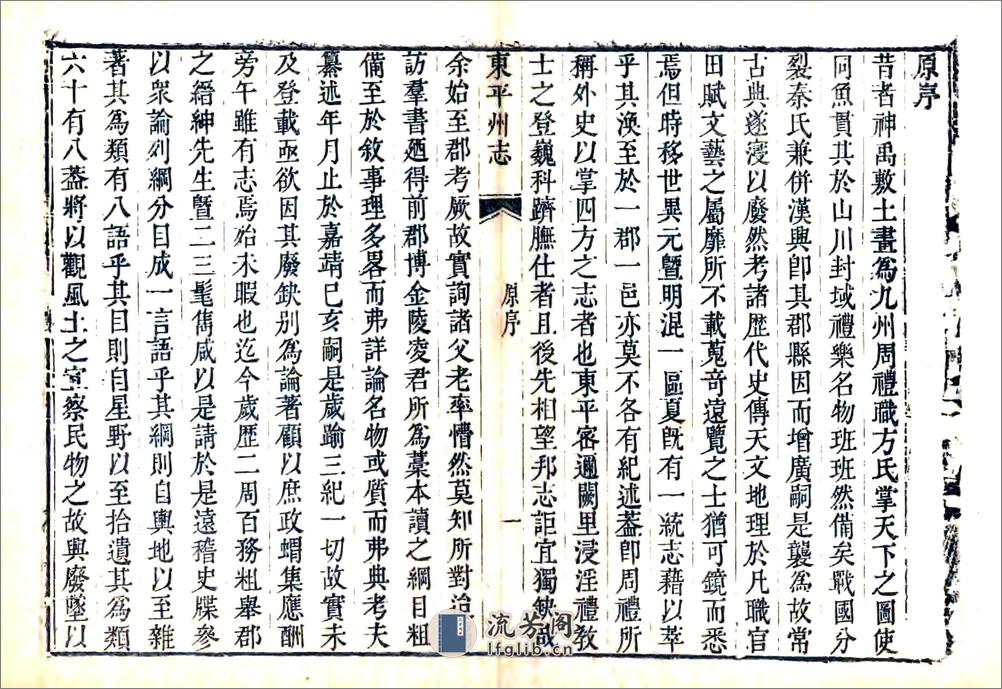 原序
昔者神禹敷土畫為九州周禮職方氏掌天下之圖使
阿魚貫其於山川封域禮樂名物班班然備矣戰國分
裂秦氏兼併漢典卽其郡縣因而增廣嗣是襲為故常
古典遂寖以廢然考諸歷代史傳天文地理於凡職官
田賦文藝之屬靡所不載蒐奇遠覽之士猶可鏡而悉
焉但時移世異元曁明混一區夏旣有一統志藉以萃
乎其渙至於一郡一邑亦莫不各有紀述葢卽周禮所
稱外史以掌四方之志者也東平密邇闕里浸淫禮敎
士之登巍科躋膴仕者且後先相望邦志詎宜獨缺哉
東平州志
原序
一
余始至郡考厥故實詢諸父老率懵然莫知所對治
訪羣書廼得前郡博金陵凌君所為藁本讀之綱目粗
備至於敘事理多畧而弗詳論名物或質而弗典考夫
纂述年月止於嘉靖己亥嗣是歲踰三紀一切故實未
及登載亟欲因其廢缺别為論著顧以庶政蝟集應酬
旁午雖有志焉始未暇也迄今歲歷二周百務粗舉郡
之縉紳先生曁二三髦儁咸以是請於是遠稽史牒參
以衆論列綱分目成一言語乎其綱則自輿地以至雜
著其為類有八語乎其目則自星野以至拾遺其為類
六十有八葢將以觀風土之宜察民物之故與廢墜以
流芳阁
lfglib.cn